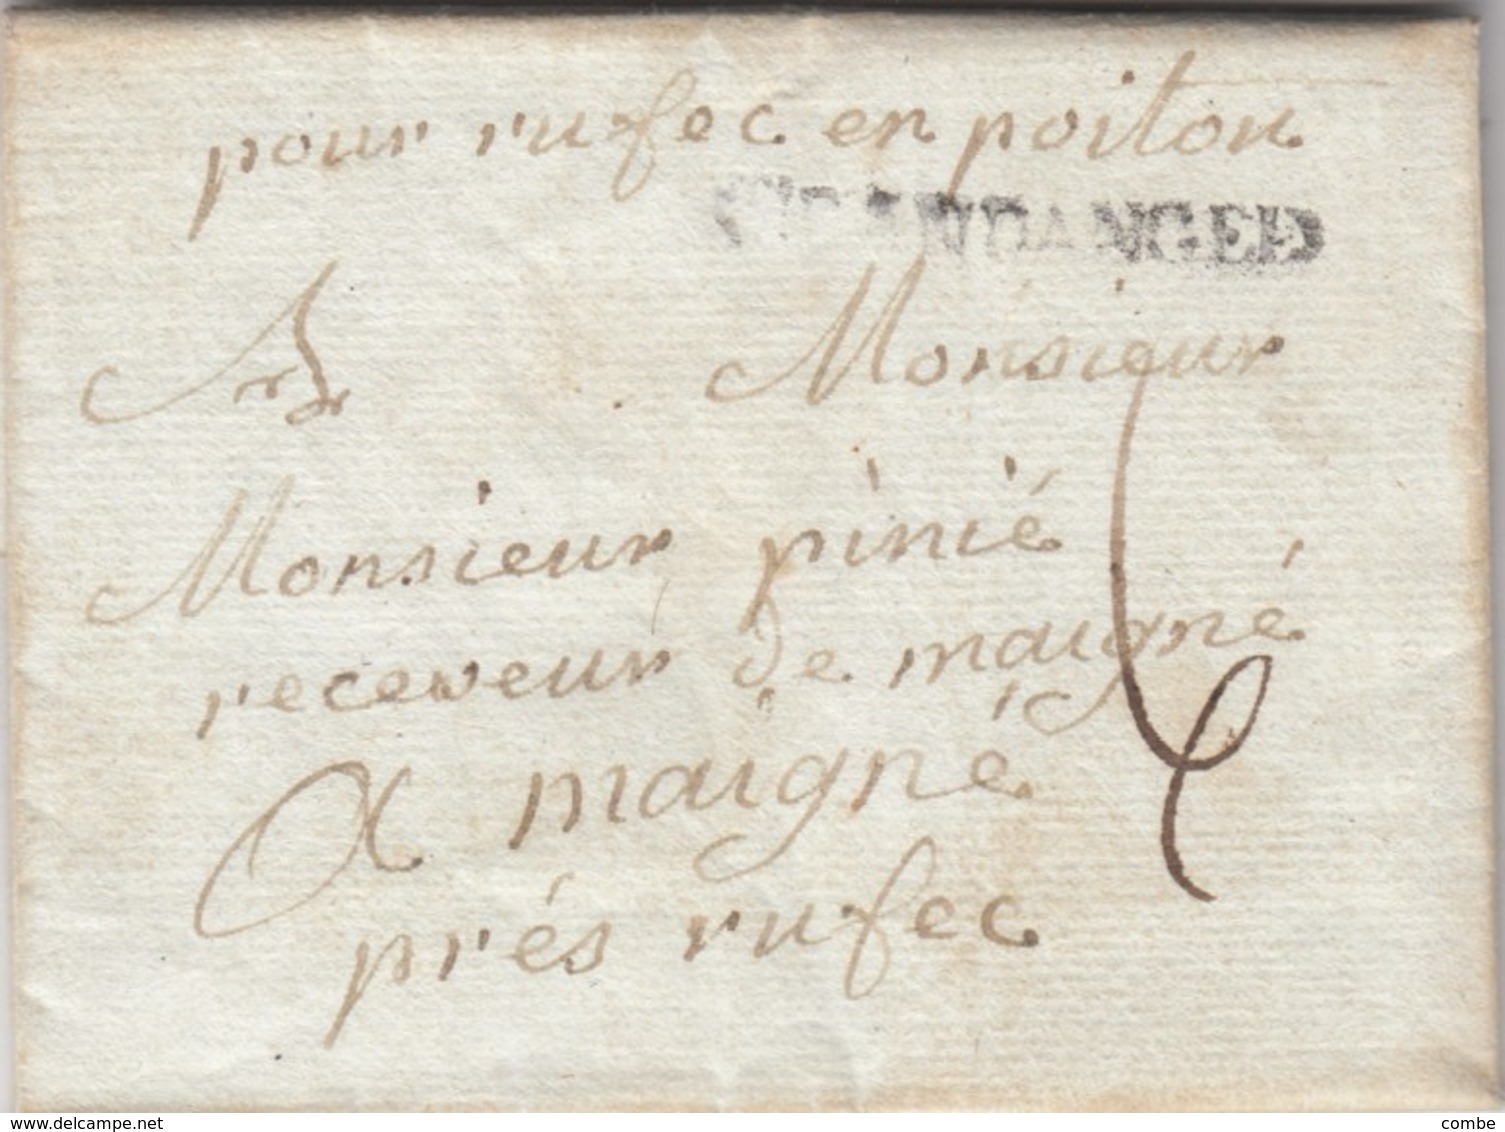 pour rufec en poitou
ST JEAN D'ANGELY
A Monsieur
Monsieur pinié
receveur de maigné
a maigné
prés rufec
www.delcampe.net
combe